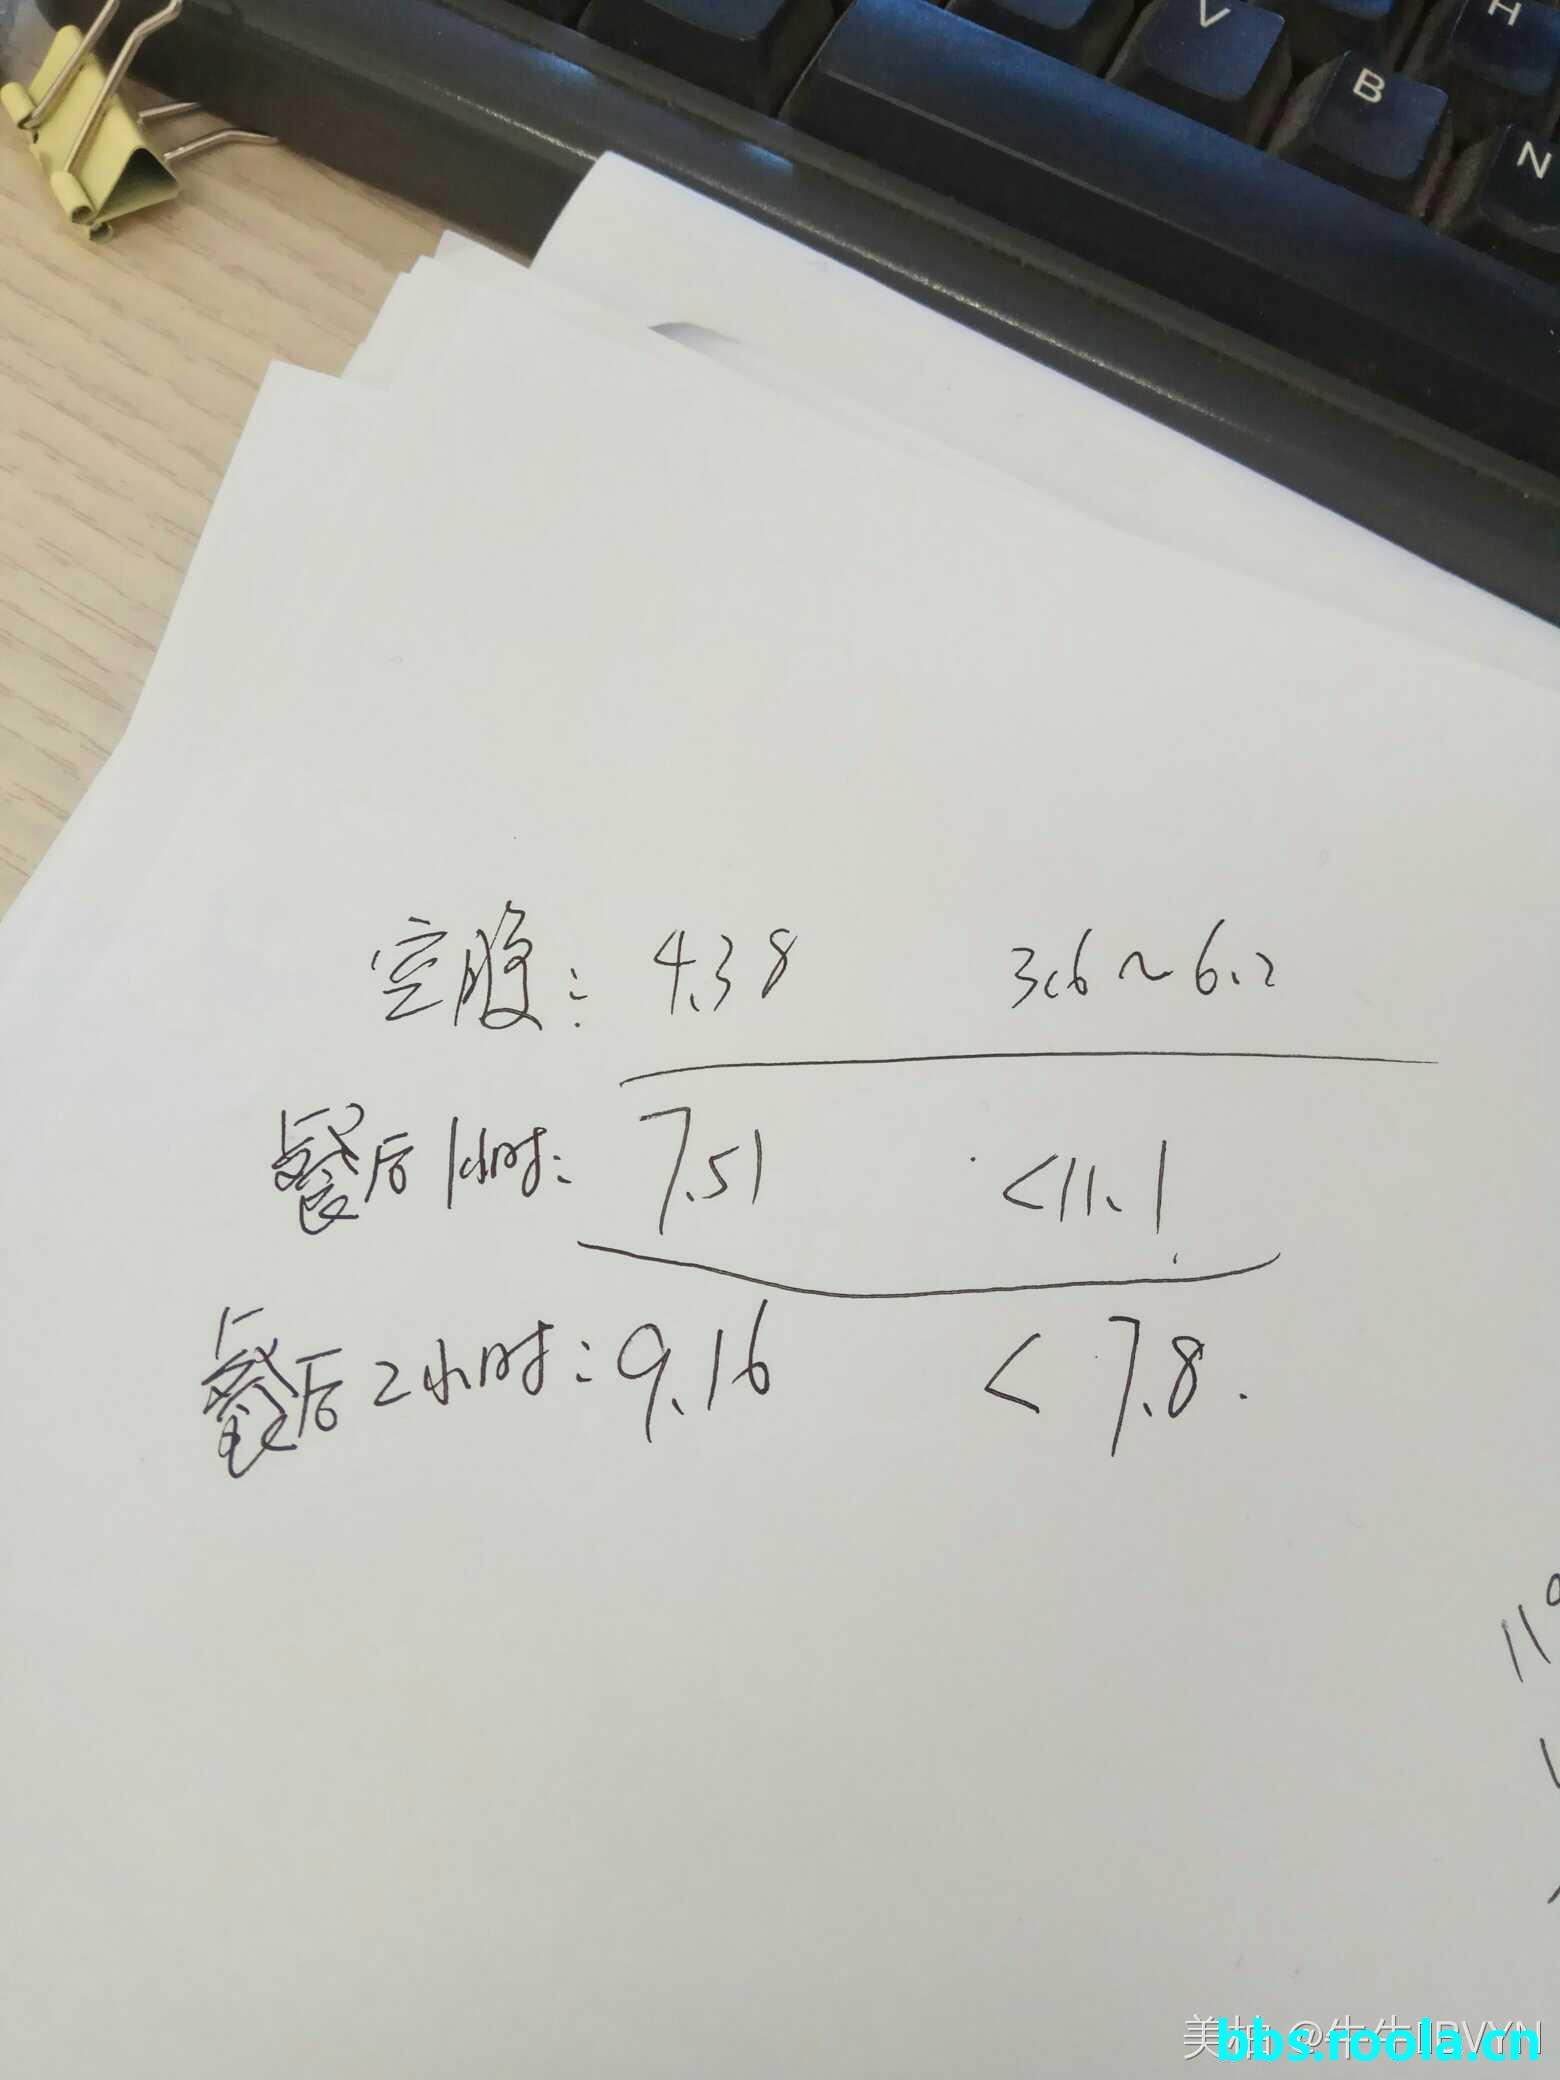 V
H
B
N
空腹：4.38 3.6～6.2
餐后1小时：7.51 <11.1
餐后2小时：9.16 <7.8.
11
美柚 @牛牛
bbs.roola.cn